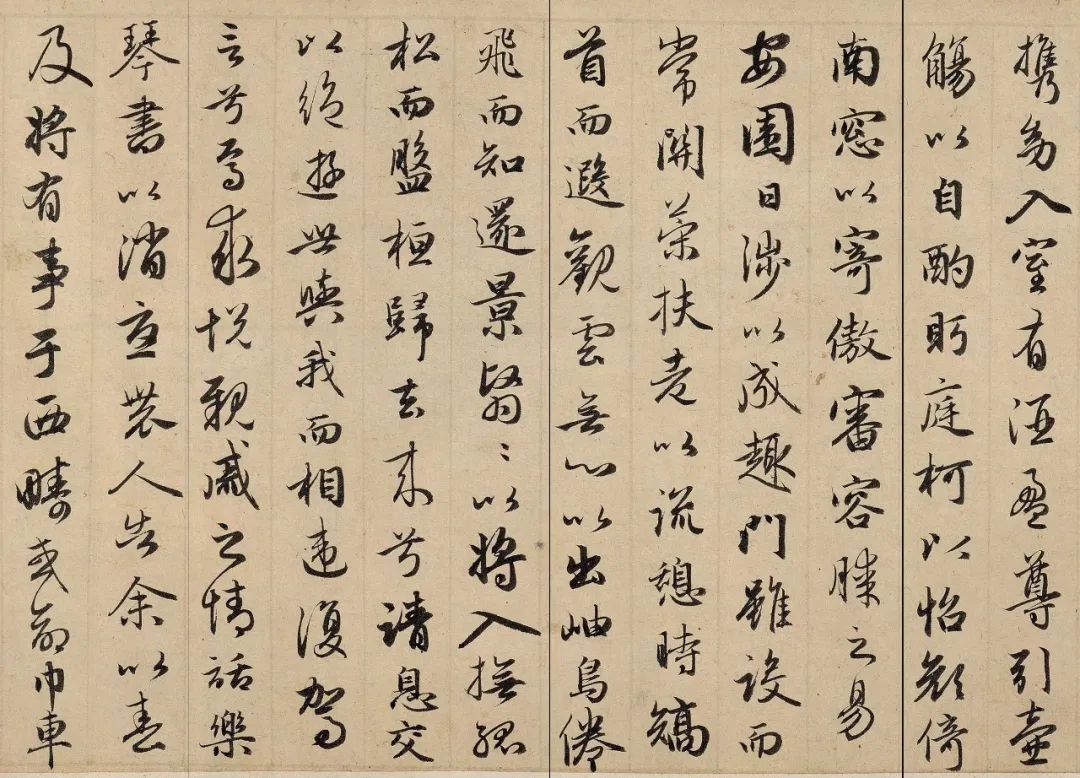 携幼入室有酒盈尊引壺
觴以自酌眄庭柯以怡顔倚
南窓以寄傲審容膝之易
安園日渉以成趣門雖設而
常關策扶老以流憩時矯
首而遐觀雲無心以出岫鳥倦
飛而知還景翳〻以將入撫孤
松而盤桓歸去来兮請息交
以絶遊世與我而相違復駕
言兮焉求悦親戚之情話樂
琴書以消憂農人告余以春
及将有事于西疇或命巾車